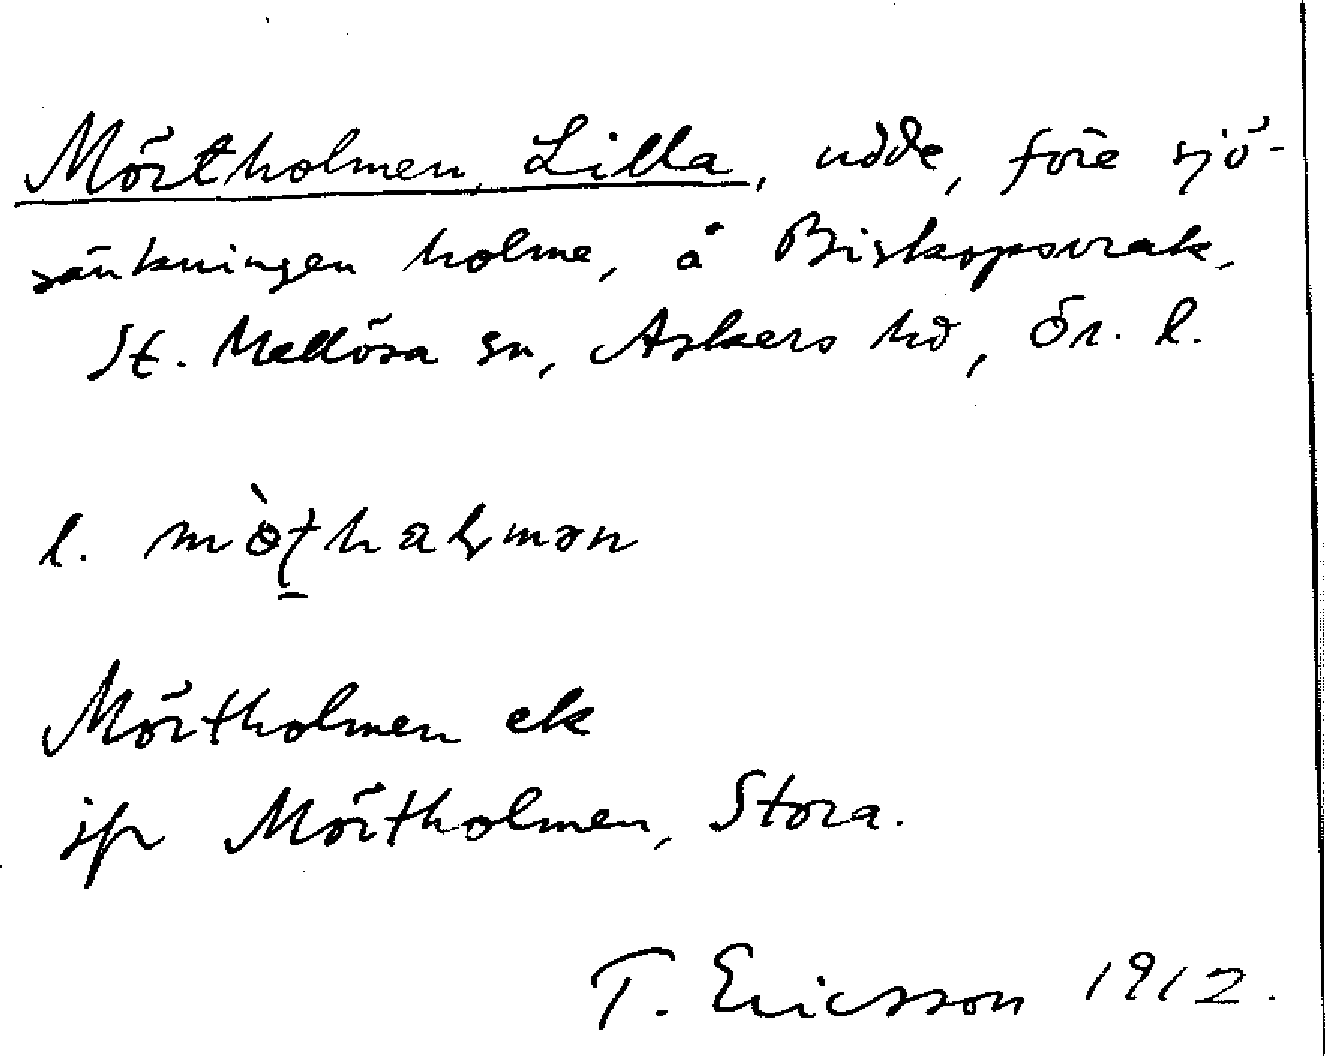 Mörtholmen, Lilla, udde, före sjö-
sänkningen holme, å Biskopsvrak,
St. Mellösa sn, Askers hd, Ör. l.
l. mö̀ţhaḷmən
Mörtholmen ek
jfr Mörtholmen, Stora.
T. Ericsson 1912.